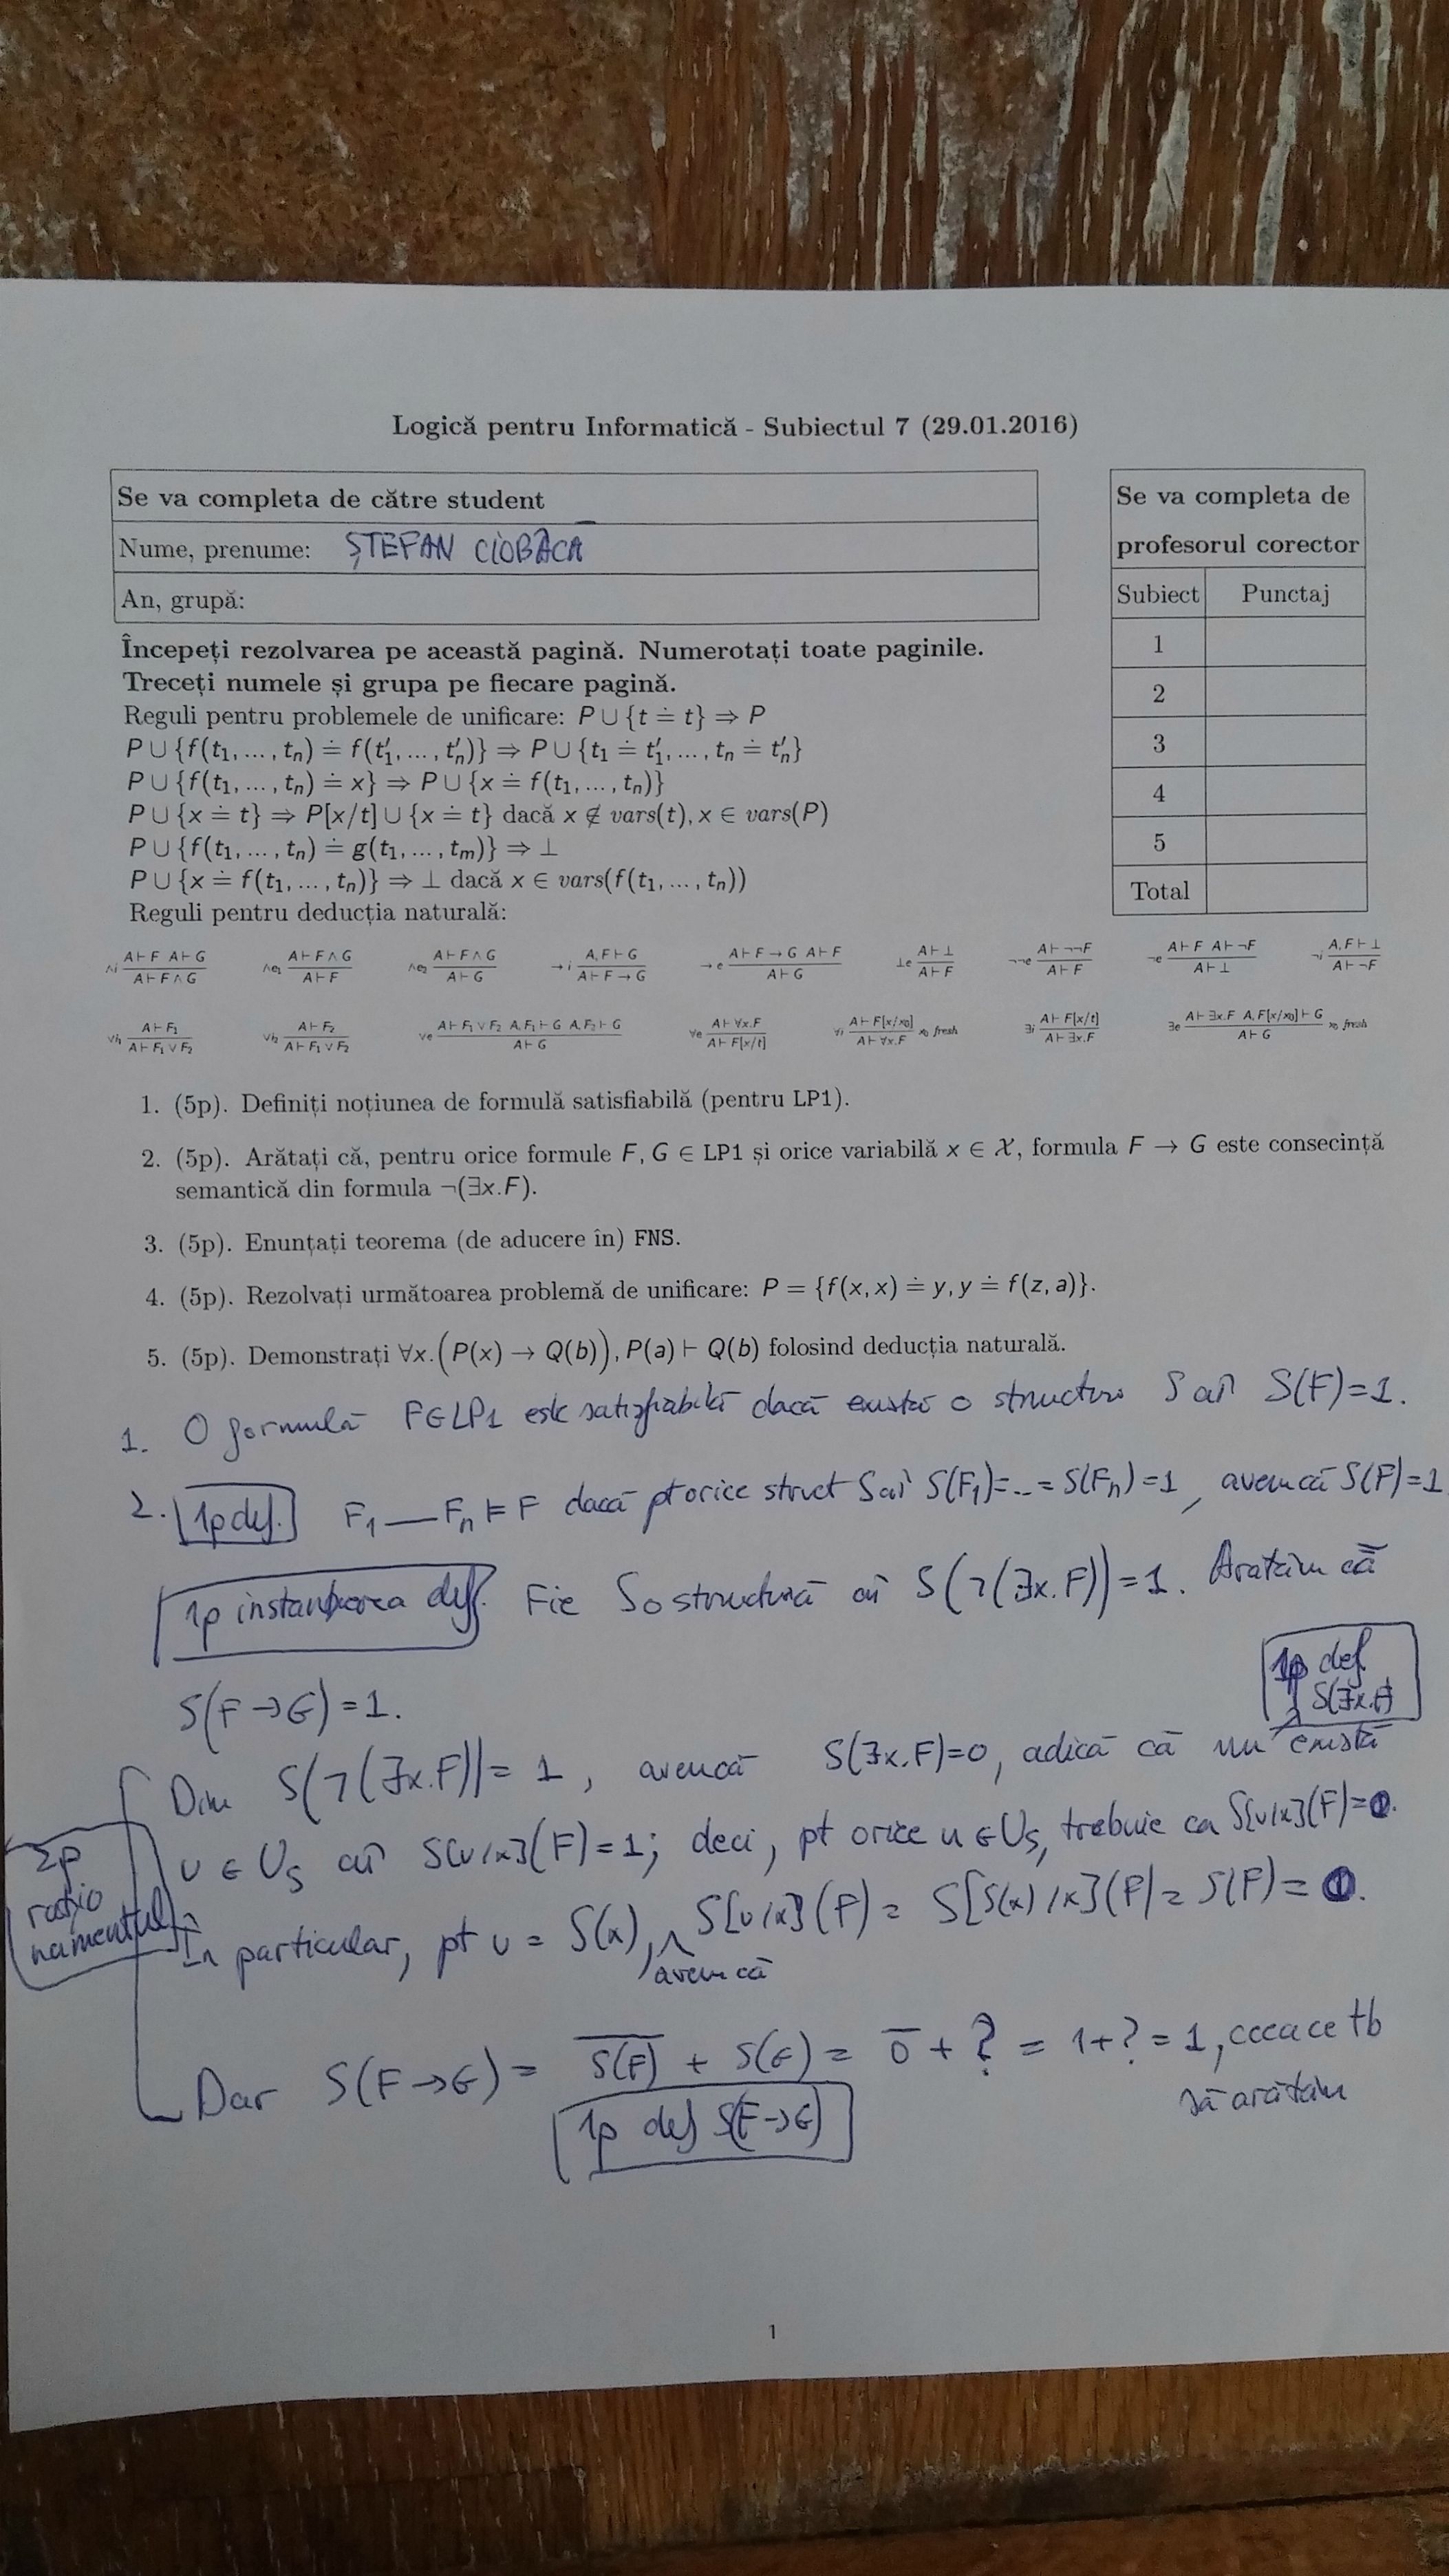 Logică pentru Informatică - Subiectul 7 (29.01.2016)
Se va completa de către student
Nume, prenume: ȘTEFAN CIOBÂCA
An, grupă:
Se va completa de
profesorul corector
Subiect Punctaj
1
2
3
4
5
Total
Începeți rezolvarea pe această pagină. Numerotați toate paginile.
Treceți numele și grupa pe fiecare pagină.
Reguli pentru problemele de unificare: P ∪ {t ≐ t} ⇒ P
P ∪ {f(t₁, ..., tₙ) ≐ f(t′₁, ..., t′ₙ)} ⇒ P ∪ {t₁ ≐ t′₁, ..., tₙ ≐ t′ₙ}
P ∪ {f(t₁, ..., tₙ) ≐ x} ⇒ P ∪ {x ≐ f(t₁, ..., tₙ)}
P ∪ {x ≐ t} ⇒ P[x/t] ∪ {x ≐ t} dacă x ∉ vars(t), x ∈ vars(P)
P ∪ {f(t₁, ..., tₙ) ≐ g(t₁, ..., tₘ)} ⇒ ⊥
P ∪ {x ≐ f(t₁, ..., tₙ)} ⇒ ⊥ dacă x ∈ vars(f(t₁, ..., tₙ))
Reguli pentru deducția naturală:
∧i A⊢F A⊢G / A⊢F∧G ∧e₁ A⊢F∧G / A⊢F ∧e₂ A⊢F∧G / A⊢G →i A,F⊢G / A⊢F→G →e A⊢F→G A⊢F / A⊢G ⊥e A⊢⊥ / A⊢F ¬¬e A⊢¬¬F / A⊢F ¬e A⊢F A⊢¬F / A⊢⊥ ¬i A,F⊢⊥ / A⊢¬F
∨i₁ A⊢F₁ / A⊢F₁∨F₂ ∨i₂ A⊢F₂ / A⊢F₁∨F₂ ∨e A⊢F₁∨F₂ A,F₁⊢G A,F₂⊢G / A⊢G ∀e A⊢∀x.F / A⊢F[x/t] ∀i A⊢F[x/x₀] / A⊢∀x.F x₀ fresh ∃i A⊢F[x/t] / A⊢∃x.F ∃e A⊢∃x.F A,F[x/x₀]⊢G / A⊢G x₀ fresh
1. (5p). Definiți noțiunea de formulă satisfiabilă (pentru LP1).
2. (5p). Arătați că, pentru orice formule F, G ∈ LP1 și orice variabilă x ∈ 𝒳, formula F → G este consecință
semantică din formula ¬(∃x.F).
3. (5p). Enunțați teorema (de aducere în) FNS.
4. (5p). Rezolvați următoarea problemă de unificare: P = {f(x, x) ≐ y, y ≐ f(z, a)}.
5. (5p). Demonstrați ∀x.(P(x) → Q(b)), P(a) ⊢ Q(b) folosind deducția naturală.
1. O formulă F∈LP1 este satisfiabilă dacă există o structură S aî S(F)=1.
2. 1p def. F₁ — Fₙ ⊨ F dacă pt orice struct S aî S(F₁)=..=S(Fₙ)=1, avem că S(F)=1
1p instanțierea def. Fie S o structură aî S(¬(∃x.F))=1. Arătăm că
S(F→G)=1.
1p def
S(∃x.F)
Din S(¬(∃x.F))=1, avem că S(∃x.F)=0, adică că nu există
u ∈ U_S aî S[u/x](F)=1; deci, pt orice u ∈ U_S, trebuie ca S[u/x](F)=0.
2p
raționamentul
În particular, pt u = S(x), avem că S[u/x](F) = S[S(x)/x](F) = S(F) = 0.
Dar S(F→G) = \overline{S(F)} + S(G) = \overline{0} + ? = 1+? = 1, ceea ce tb
să arătăm
1p def S(F→G)
1